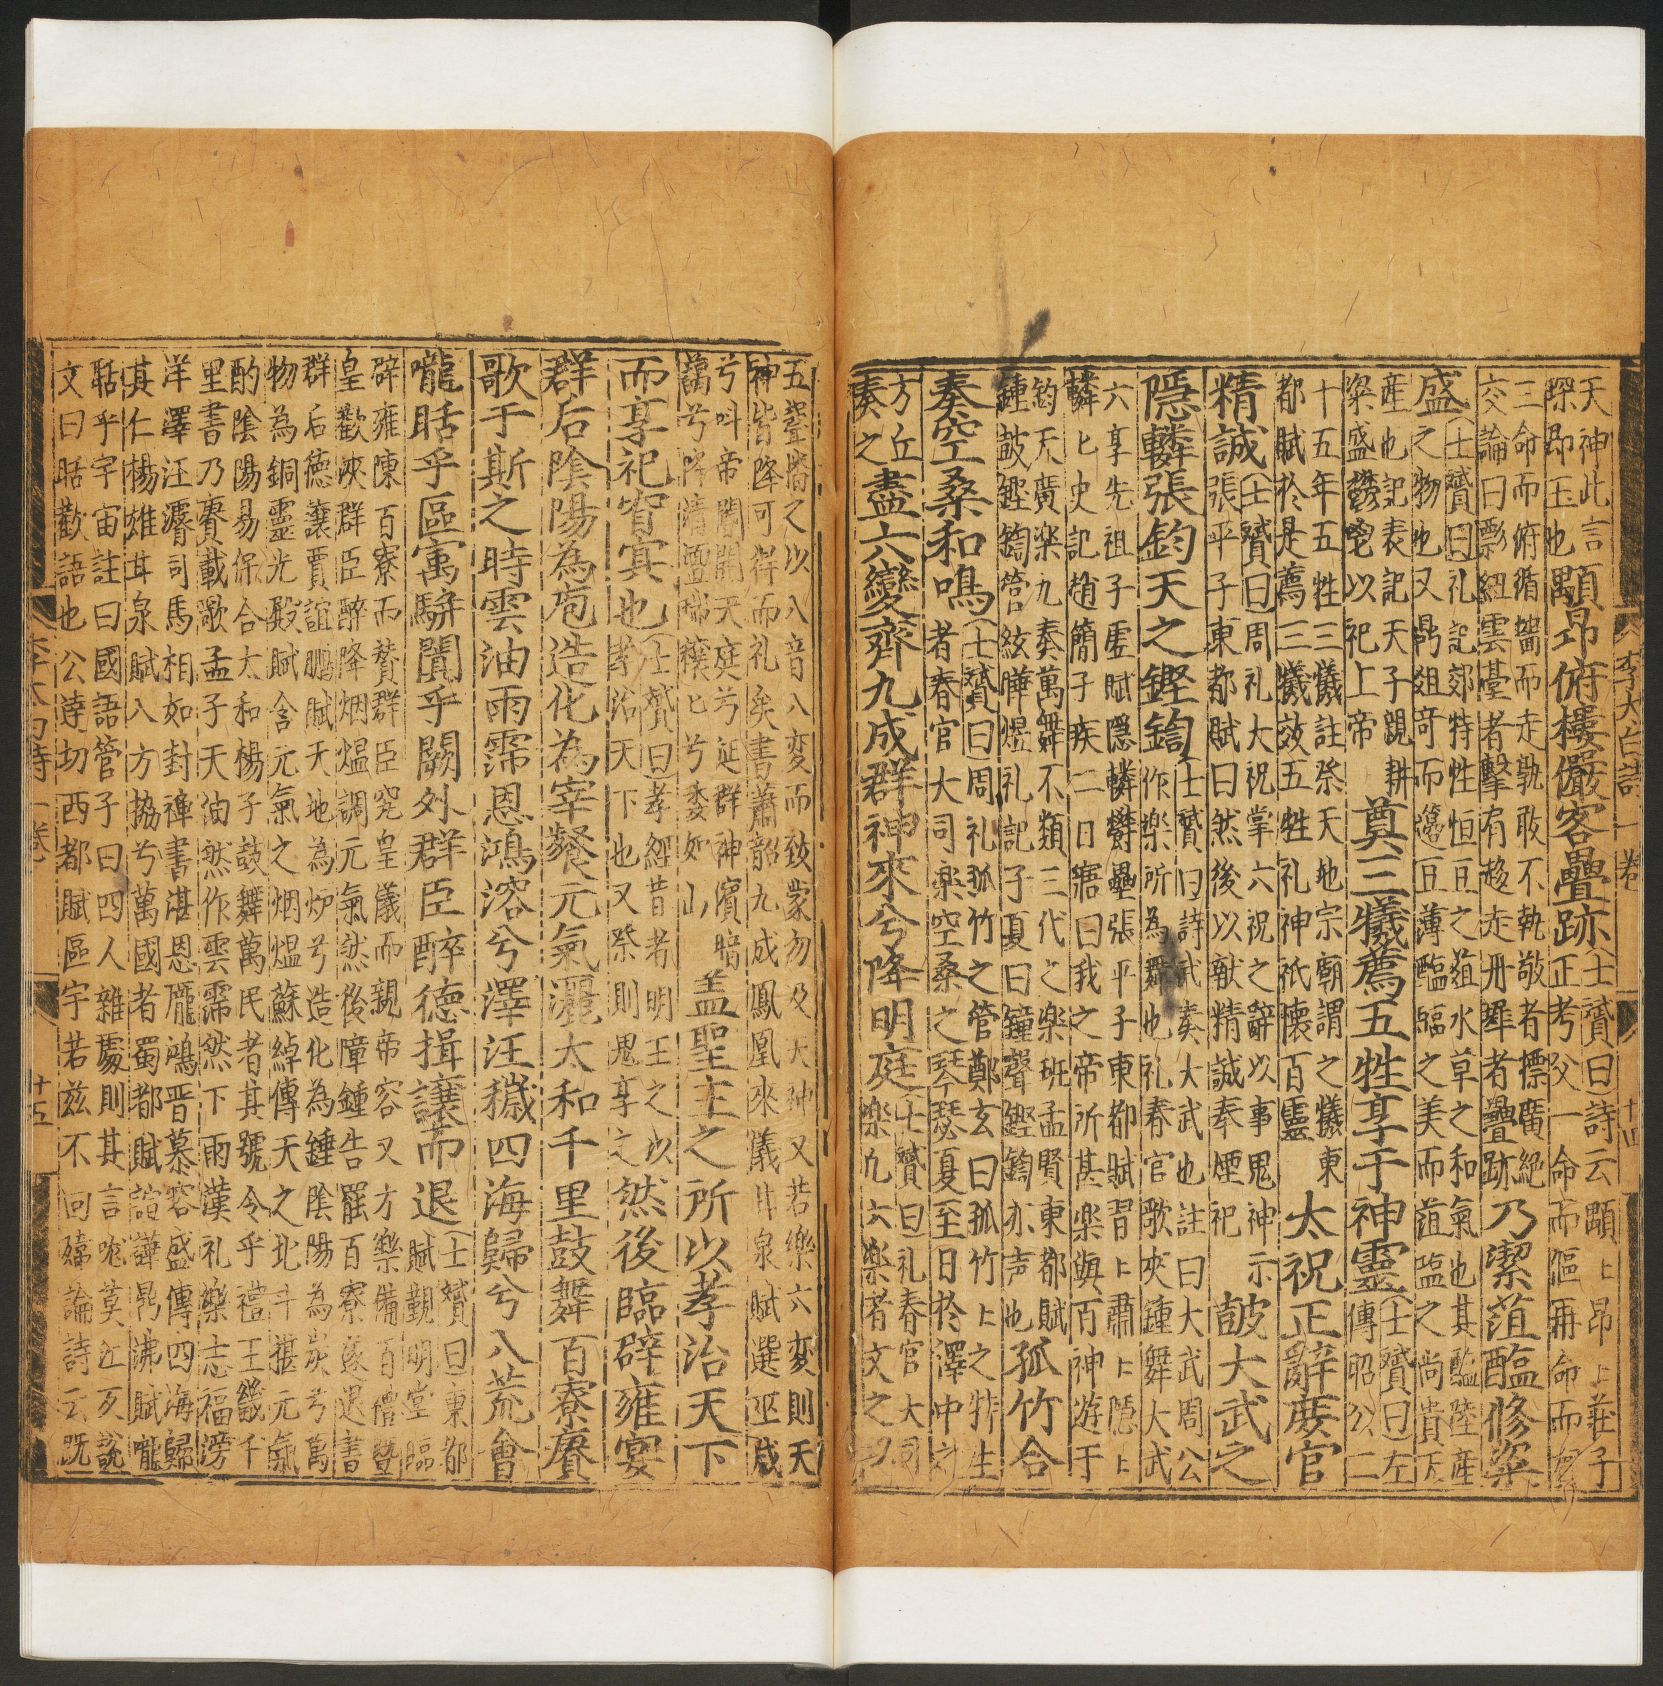 天神此言顒昂俯僂儼客疊跡士贇曰詩云顒ヒ昂ヒ莊子
琛即玉也正考父一命而傴再命而
三命而俯循墻而走孰敢不執敬者摽廣絕
交論曰影組雲臺者擊有趍走丹墀者疊跡乃潔葅醢修粢
盛士贇曰礼記郊特牲恒豆之葅水草之和氣也其醢陸産
之物也又鼎俎奇而籩豆薄醢臨之美而葅醢之尚貴天
産也記表記天子親耕
粢盛鬱鬯以祀上帝奠三犧薦五牲享于神靈士贇曰左
傳昭公二
十五年五牲三犧註祭天地宗廟謂之犧東
都賦於是薦三犧效五牲礼神祇懷百靈太祝正辭庶官
精誠士贇曰周礼大祝掌六祝之辭以事鬼神示
張平子東都賦曰然後以献精誠奉煙祀鼓大武之
隱轔張鈞天之鏗鍧士贇曰詩武奏大武也註曰大武周公
作樂所為舞也礼春官歌夾鍾舞大武
六享先祖子虛賦隱轔鬱壘張平子東都賦習ヒ肅ヒ隱ヒ
轔ヒ史記趙簡子疾二日寤曰我之帝所甚楽與百神游于
鈞天廣楽九奏萬舞不類三代之楽班孟賢東都賦
鍾鼓鏗鍧管絃曄煜礼記子夏曰鐘聲鏗鍧亦声也孤竹合
奏空桑和鳴士贇曰周礼孤竹之管鄭玄曰孤竹ヒ之特生
者春官大司楽空桑之琴瑟夏至日於澤中之
方丘
奏之盡六變齊九成群神來兮降明庭士贇曰礼春官大司
楽九六楽者文之以
五聲播之以八音八変而致蒙勿及大神又若樂六變則天
神皆降可得而礼矣書蕭韶九成鳳凰來儀甘泉賦選巫咸
兮叫帝閽開天庭兮延群神濱暗
萬兮降清壇瑞穰ヒ兮委如山盖聖主之所以孝治天下
而享祀窅㝠也士贇曰孝經昔者明王之以
孝治天下也又祭則鬼享之然後臨辟雍宴
群后陰陽為庖造化為宰餐元氣灑太和千里鼓舞百寮賡
歌于斯之時雲油雨霈恩鴻溶兮澤汪穢四海歸兮八荒會
嚨聒乎區㝢駢闐乎闕外群臣醉德揖讓而退士贇曰東都
賦覲明堂臨
辟雍陳百寮而贊群臣究皇儀而親帝容又方樂備百僚曁
皇歡浹群臣醉降烟熅調元氣然後障鍾告罷百寮遂退書
群后德讓賈誼鵬賦天地為炉兮造化為錘陰陽為炭兮萬
物為銅靈光殿賦含元氣之烟熅蘇綽傳天之北斗揕元氣
酌陰陽易保合大和楊子鼓舞萬民者其號令乎禮王畿千
里書乃賡載歌孟子天油然作雲霈然下雨漢礼樂志福滂
洋澤汪濊司馬相如封禅書湛恩厖鴻晋慕容盛傳四海歸
其仁楊雄甘泉賦八方協兮萬國者蜀都賦諠譁鼎沸賦嚨
聒乎宇宙註曰國語管子曰四人雜處則其言哤莫江歹說
文曰聒歡語也公達切西都賦區宇若兹不回殫論詩云既
李太白詩一卷
十四
李太白詩一卷
十五